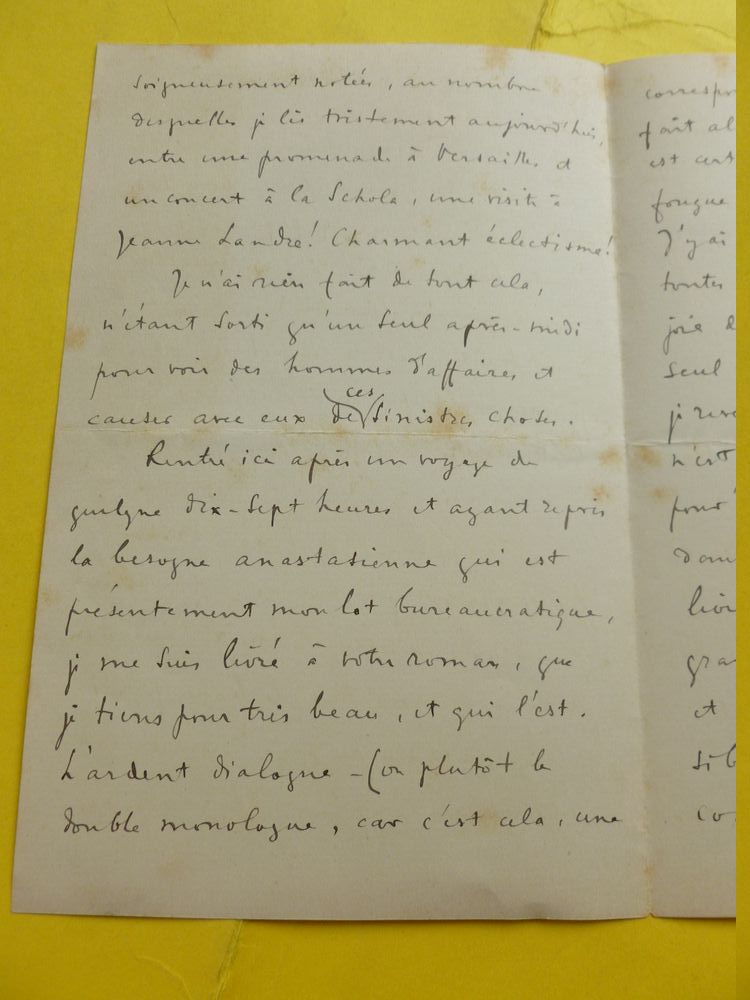 soigneusement notées, au nombre
desquelles je lis tristement aujourd'hui,
entre une promenade à Versailles et
un concert à la Schola, une visite à
Jeanne Landre! Charmant éclectisme!
Je n'ai rien fait de tout cela,
n'étant sorti qu'un seul après-midi
pour voir des hommes d'affaires et
causer avec eux de ces sinistres choses.
Rentré ici après un voyage de
quelque dix-sept heures et ayant repris
la besogne anastasienne qui est
présentement mon lot bureaucratique,
je me suis livré à votre roman, que
je tiens pour très beau, et qui l'est.
L'ardent dialogue – (ou plutôt le
double monologue, car c'est cela, une
fait
est
fougue
J'y ai
toutes
joie
seul
n'est
pour
et